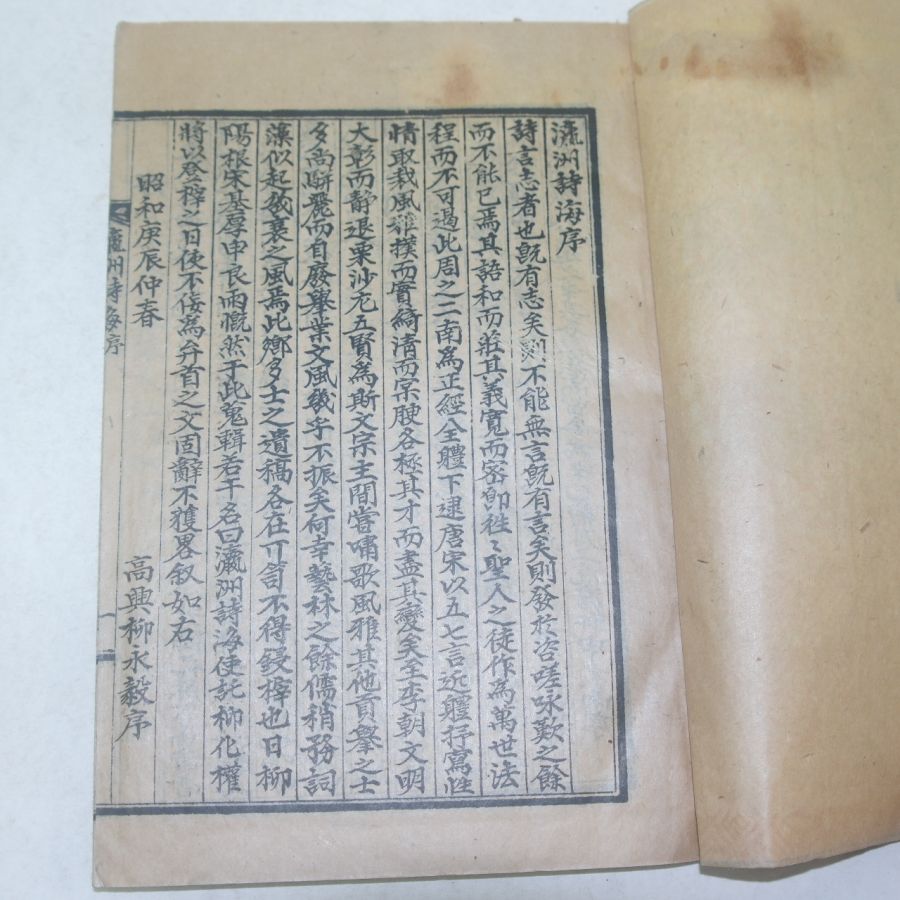 瀛洲詩海序
詩言志者也旣有志矣則不能無言旣有言矣則發於咨嗟咏歎之餘
而不能已焉其語和而莊其義寬而密卽徃〻聖人之徒作爲萬世法
程而不可過此周之二南爲正經全體下逮唐宋以五七言近軆抒寫性
情取裁風雅撲而實綺淸而腴各極其才而盡其變矣至李朝文明
大彰而靜退栗沙尤五賢爲斯文宗主間嘗嘯歌風雅其他頁擧之士
多尚騈麗而自廢擧業文風幾乎不振矣何幸藝林之餘儒稍務詞
藻似起衰之風焉此鄕多士之遺稿各在巾笥不得鋟梓也日柳
陽根宋基厚申良雨慨然于此蒐輯若干名曰瀛洲詩海使託柳化權
將以登梓之日使不侫爲弁首之文固辭不獲畧叙如右
昭和庚辰仲春
高興柳永毅序
瀛洲詩海序
一